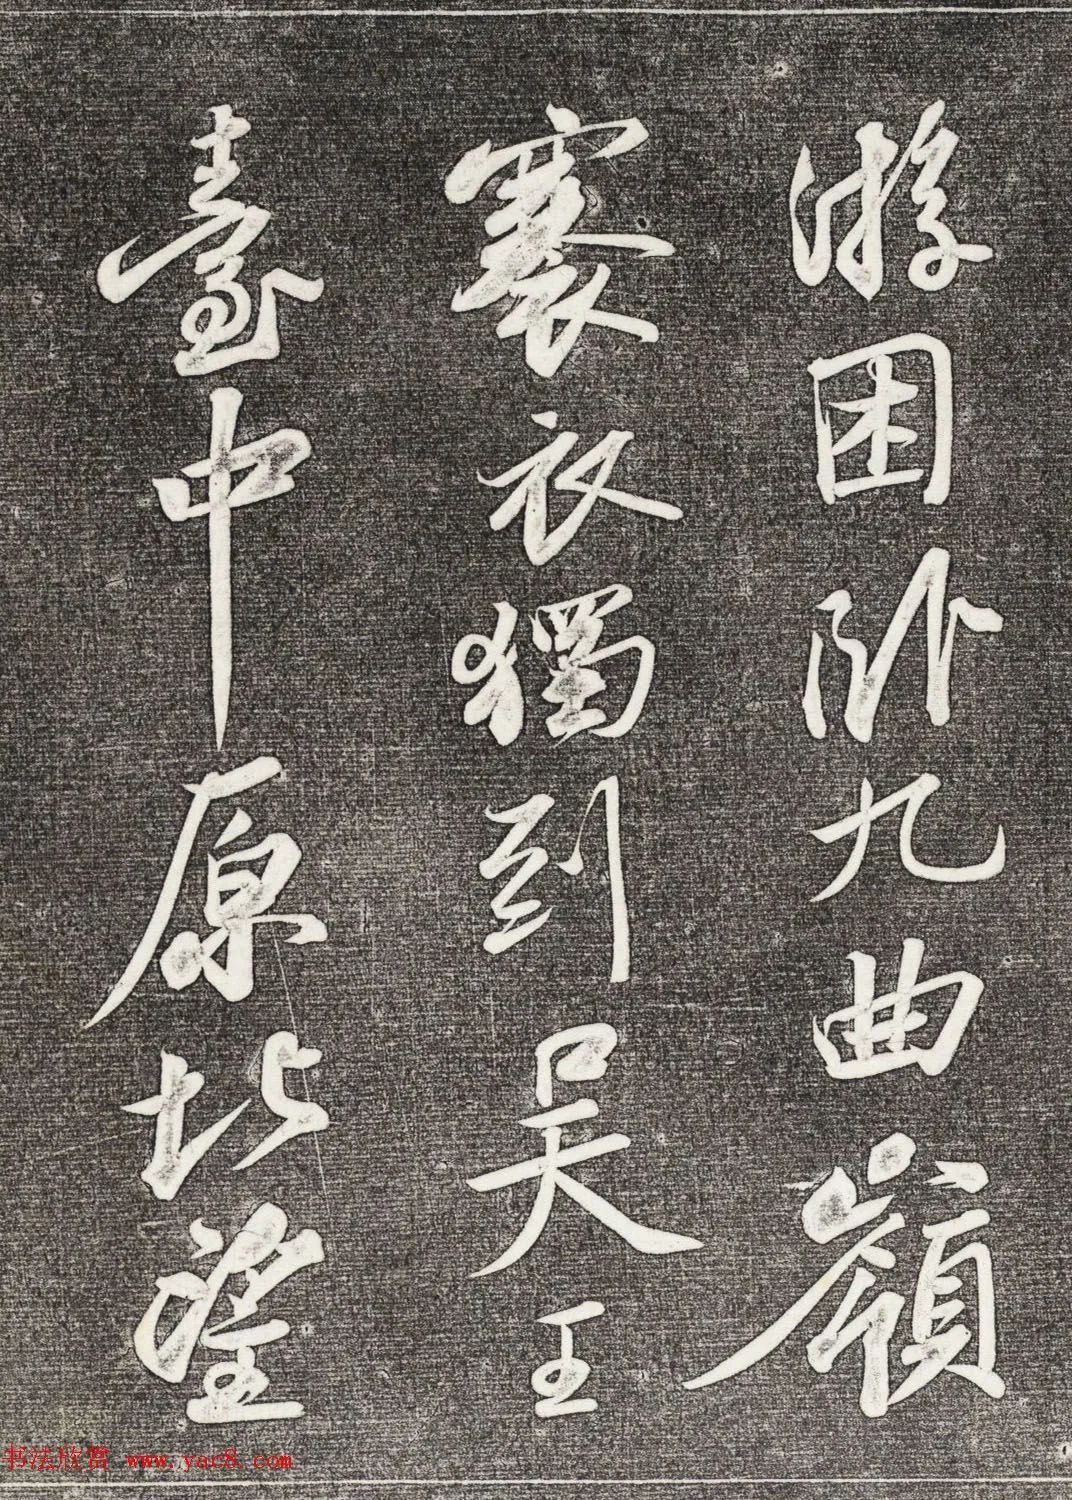 游困卧九曲嶺
褰衣獨到吳王
臺中原北望
书法欣赏 www.yac8.com